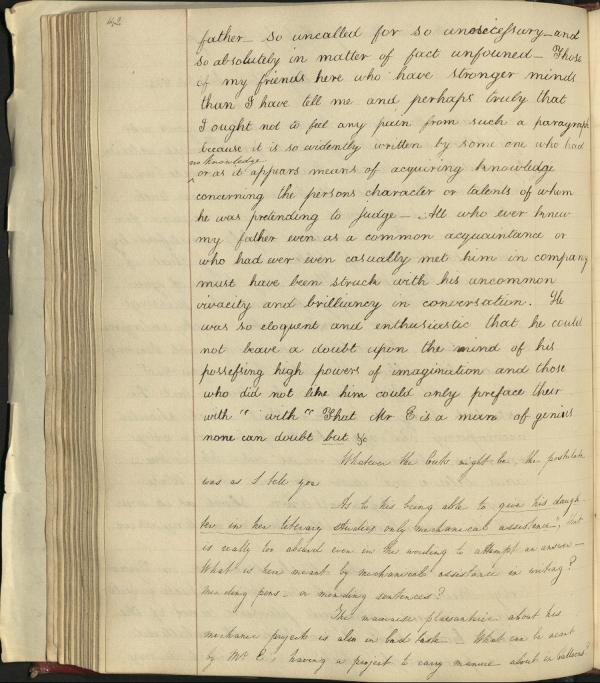 42
father so uncalled for so unnecessary and
so absolutely in matter of fact unfouned — Those
of my friends here who have stronger minds
than I have tell me and perhaps truly that
I ought not to feel any pain from such a paragraph
because it is so evidently written by some one who had
no knowledge
or as it appears means of acquiring knowledge
concerning the persons character or talents of whom
he was pretending to judge — All who ever knew
my father even as a common acquaintance or
who had ever even casually met him in company
must have been struck with his uncommon
vivacity and brilliancy in conversation. He
was so eloquent and enthusiastic that he could
not leave a doubt upon the mind of his
possessing high powers of imagination and those
who did not like him could only preface their
with " with " That Mr E is a man of genius
none can doubt but &c
Whatever the buts might be, the postulate
was as I tell you
As to his being able to give his daugh
ter in her literary studies only mechanical assistance; that
is really too absurd even in the wording to attempt an answer —
What is here meant by mechanical assistance in writing?
Mending pens — or mending sentences?
The mauvaise plaisanterie about his
mechanic projects is also in bad taste — What can be meant
by Mr E's having a project to carry manure about in balloons